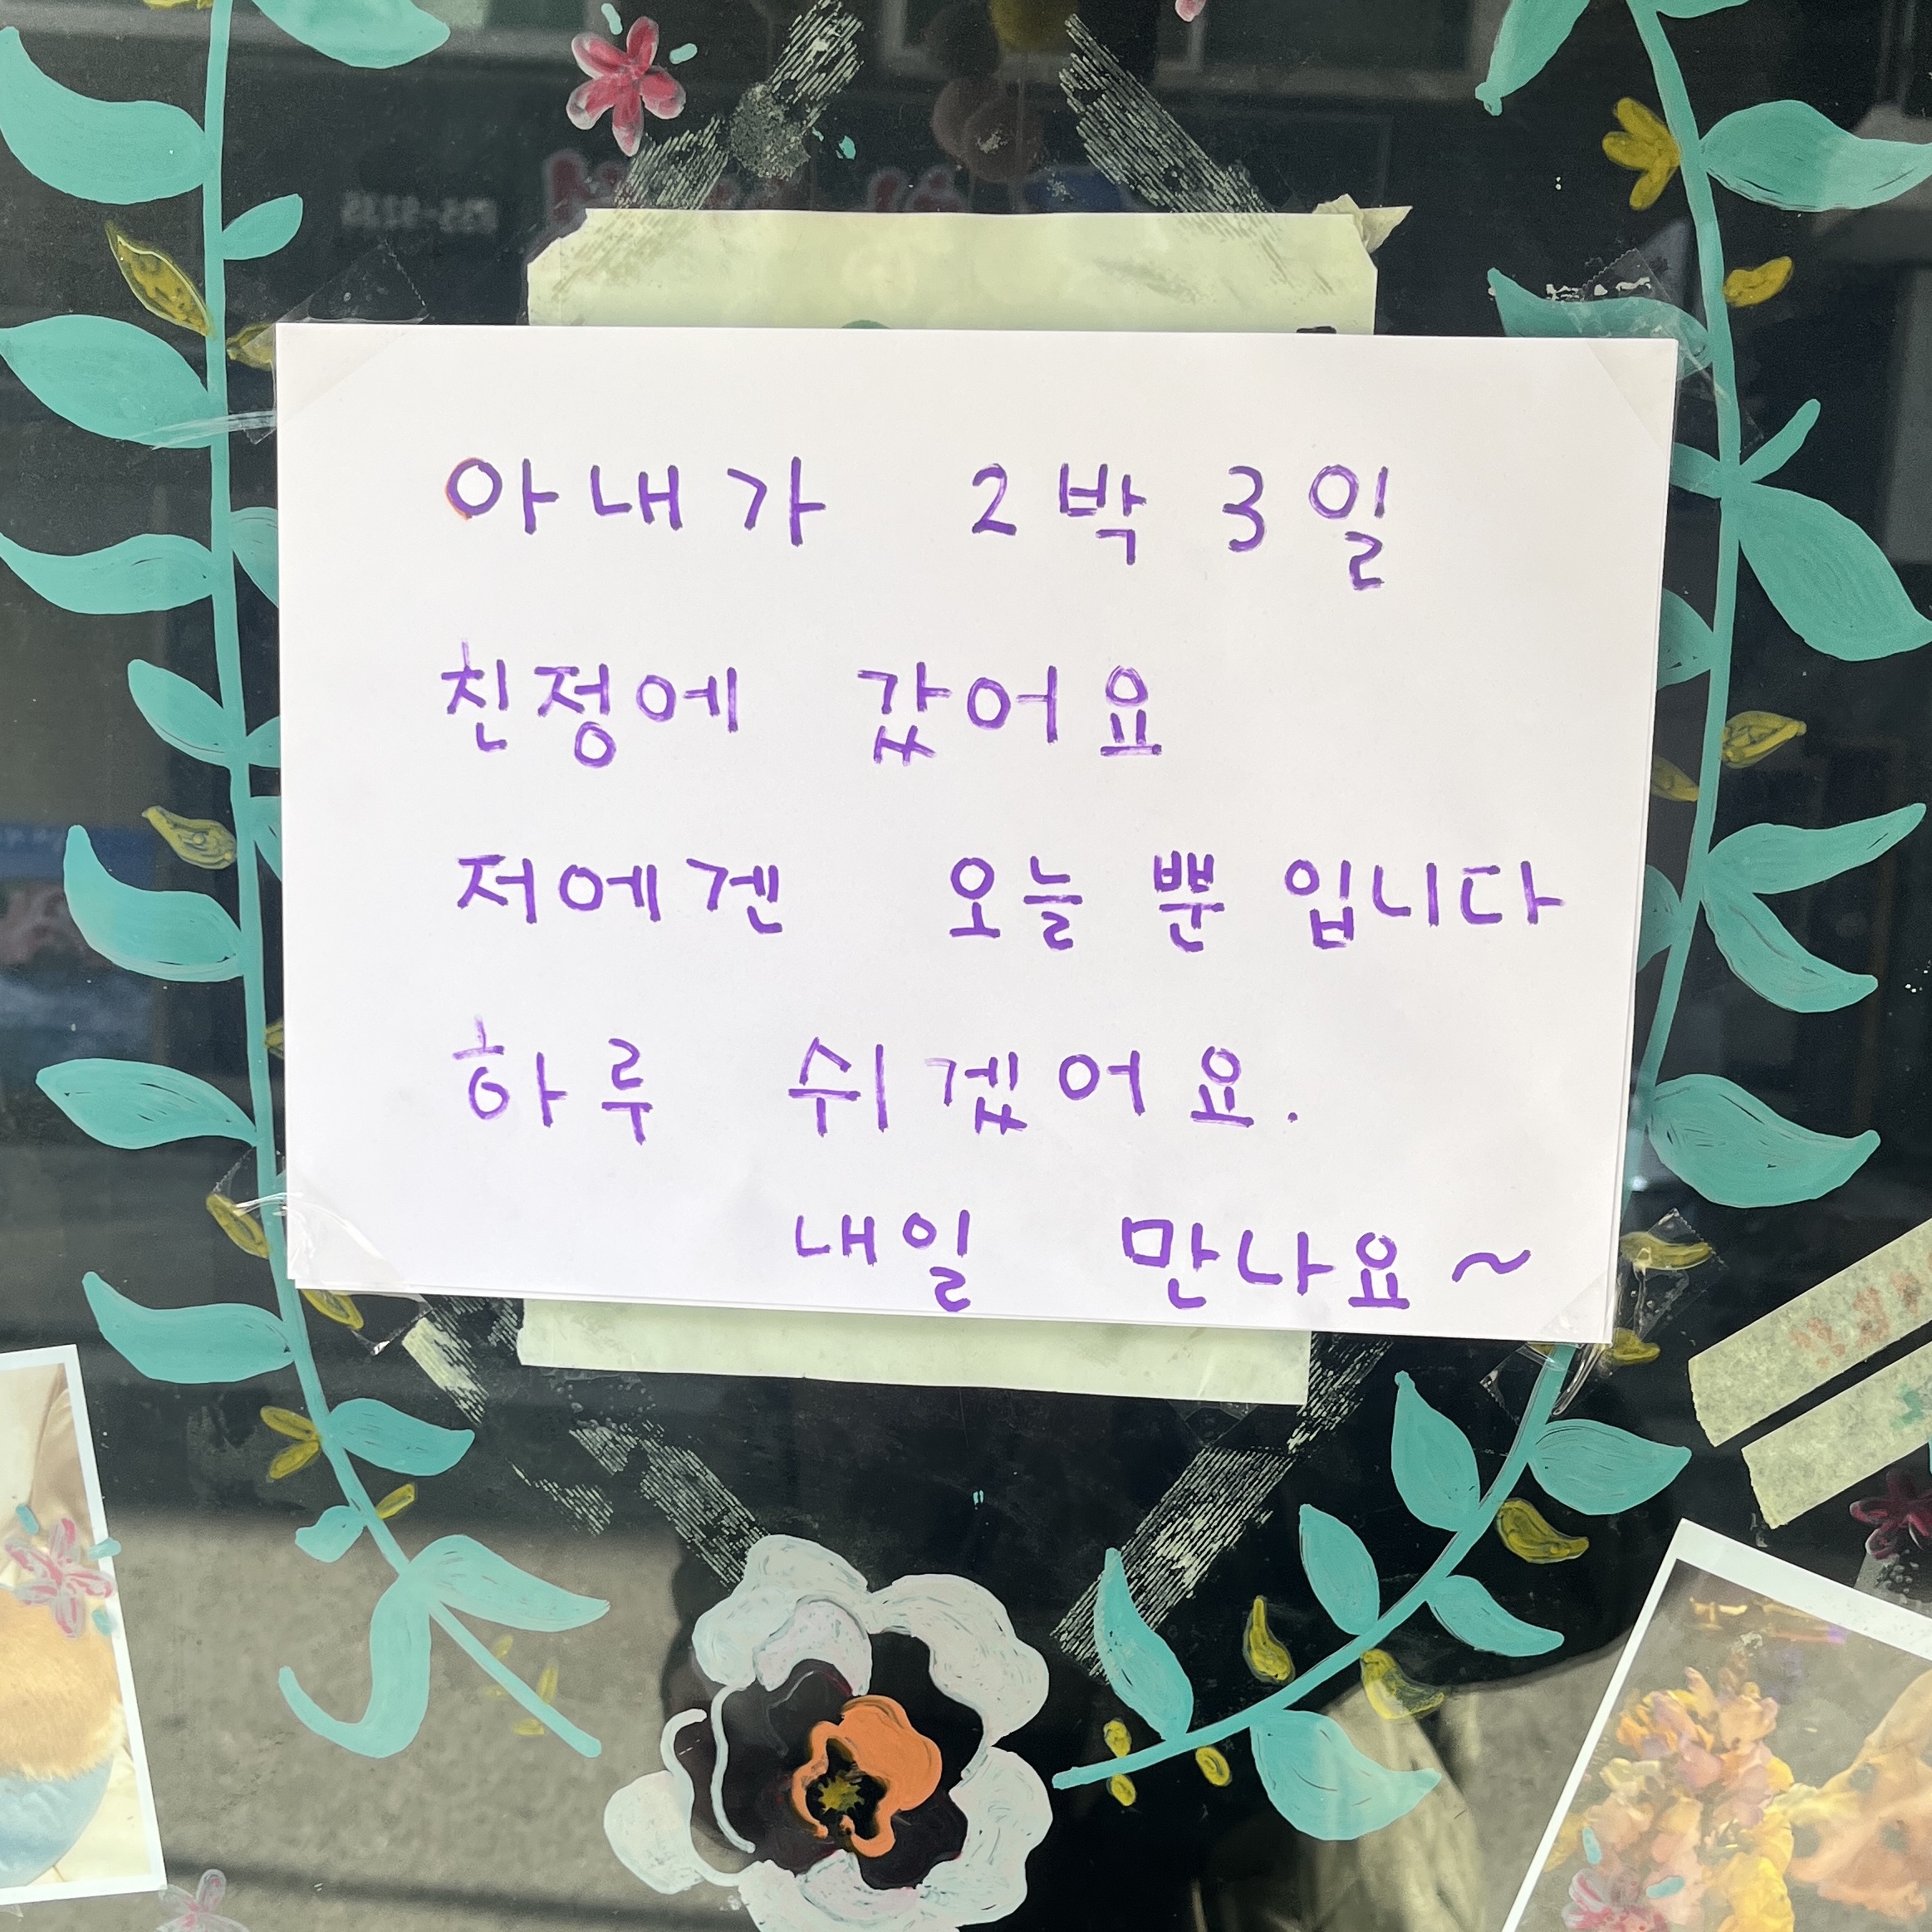 아내가 2박 3일
친정에 갔어요
저에겐 오늘 뿐 입니다
하루 쉬겠어요.
내일 만나요~